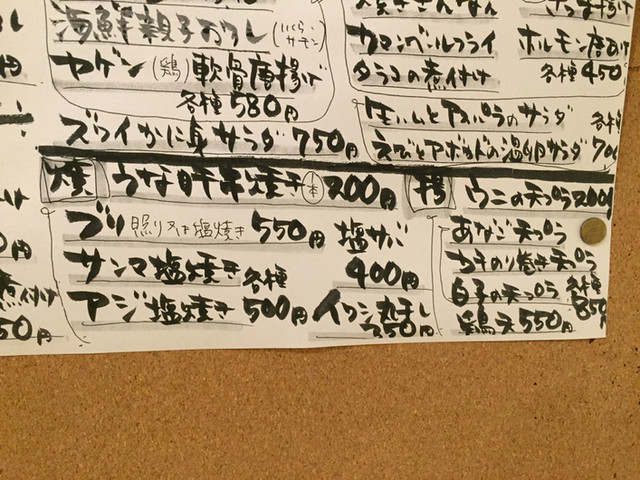 海鮮親子おろし(いくら・サーモン)
ヤゲン(鶏)軟骨唐揚げ
各種580円
ズワイかに身サラダ 750円
カマンベールフライ
タラコの煮付け
ホルモン唐揚げ
各種450
生ハムとアスパラのサラダ
各種
えびとアボカドの温卵サラダ 700
焼 うな肝串焼き 1本 200円
ブリ 照り又は塩焼き 550円
サンマ塩焼き
アジ塩焼き
各種
500円
塩サバ
400円
イワシ丸干し
350円
揚 ウニの天ぷら 200
あなご天ぷら
カキのり巻き天ぷら
白子の天ぷら
各種
850
鶏天 550円
煮付け
50円